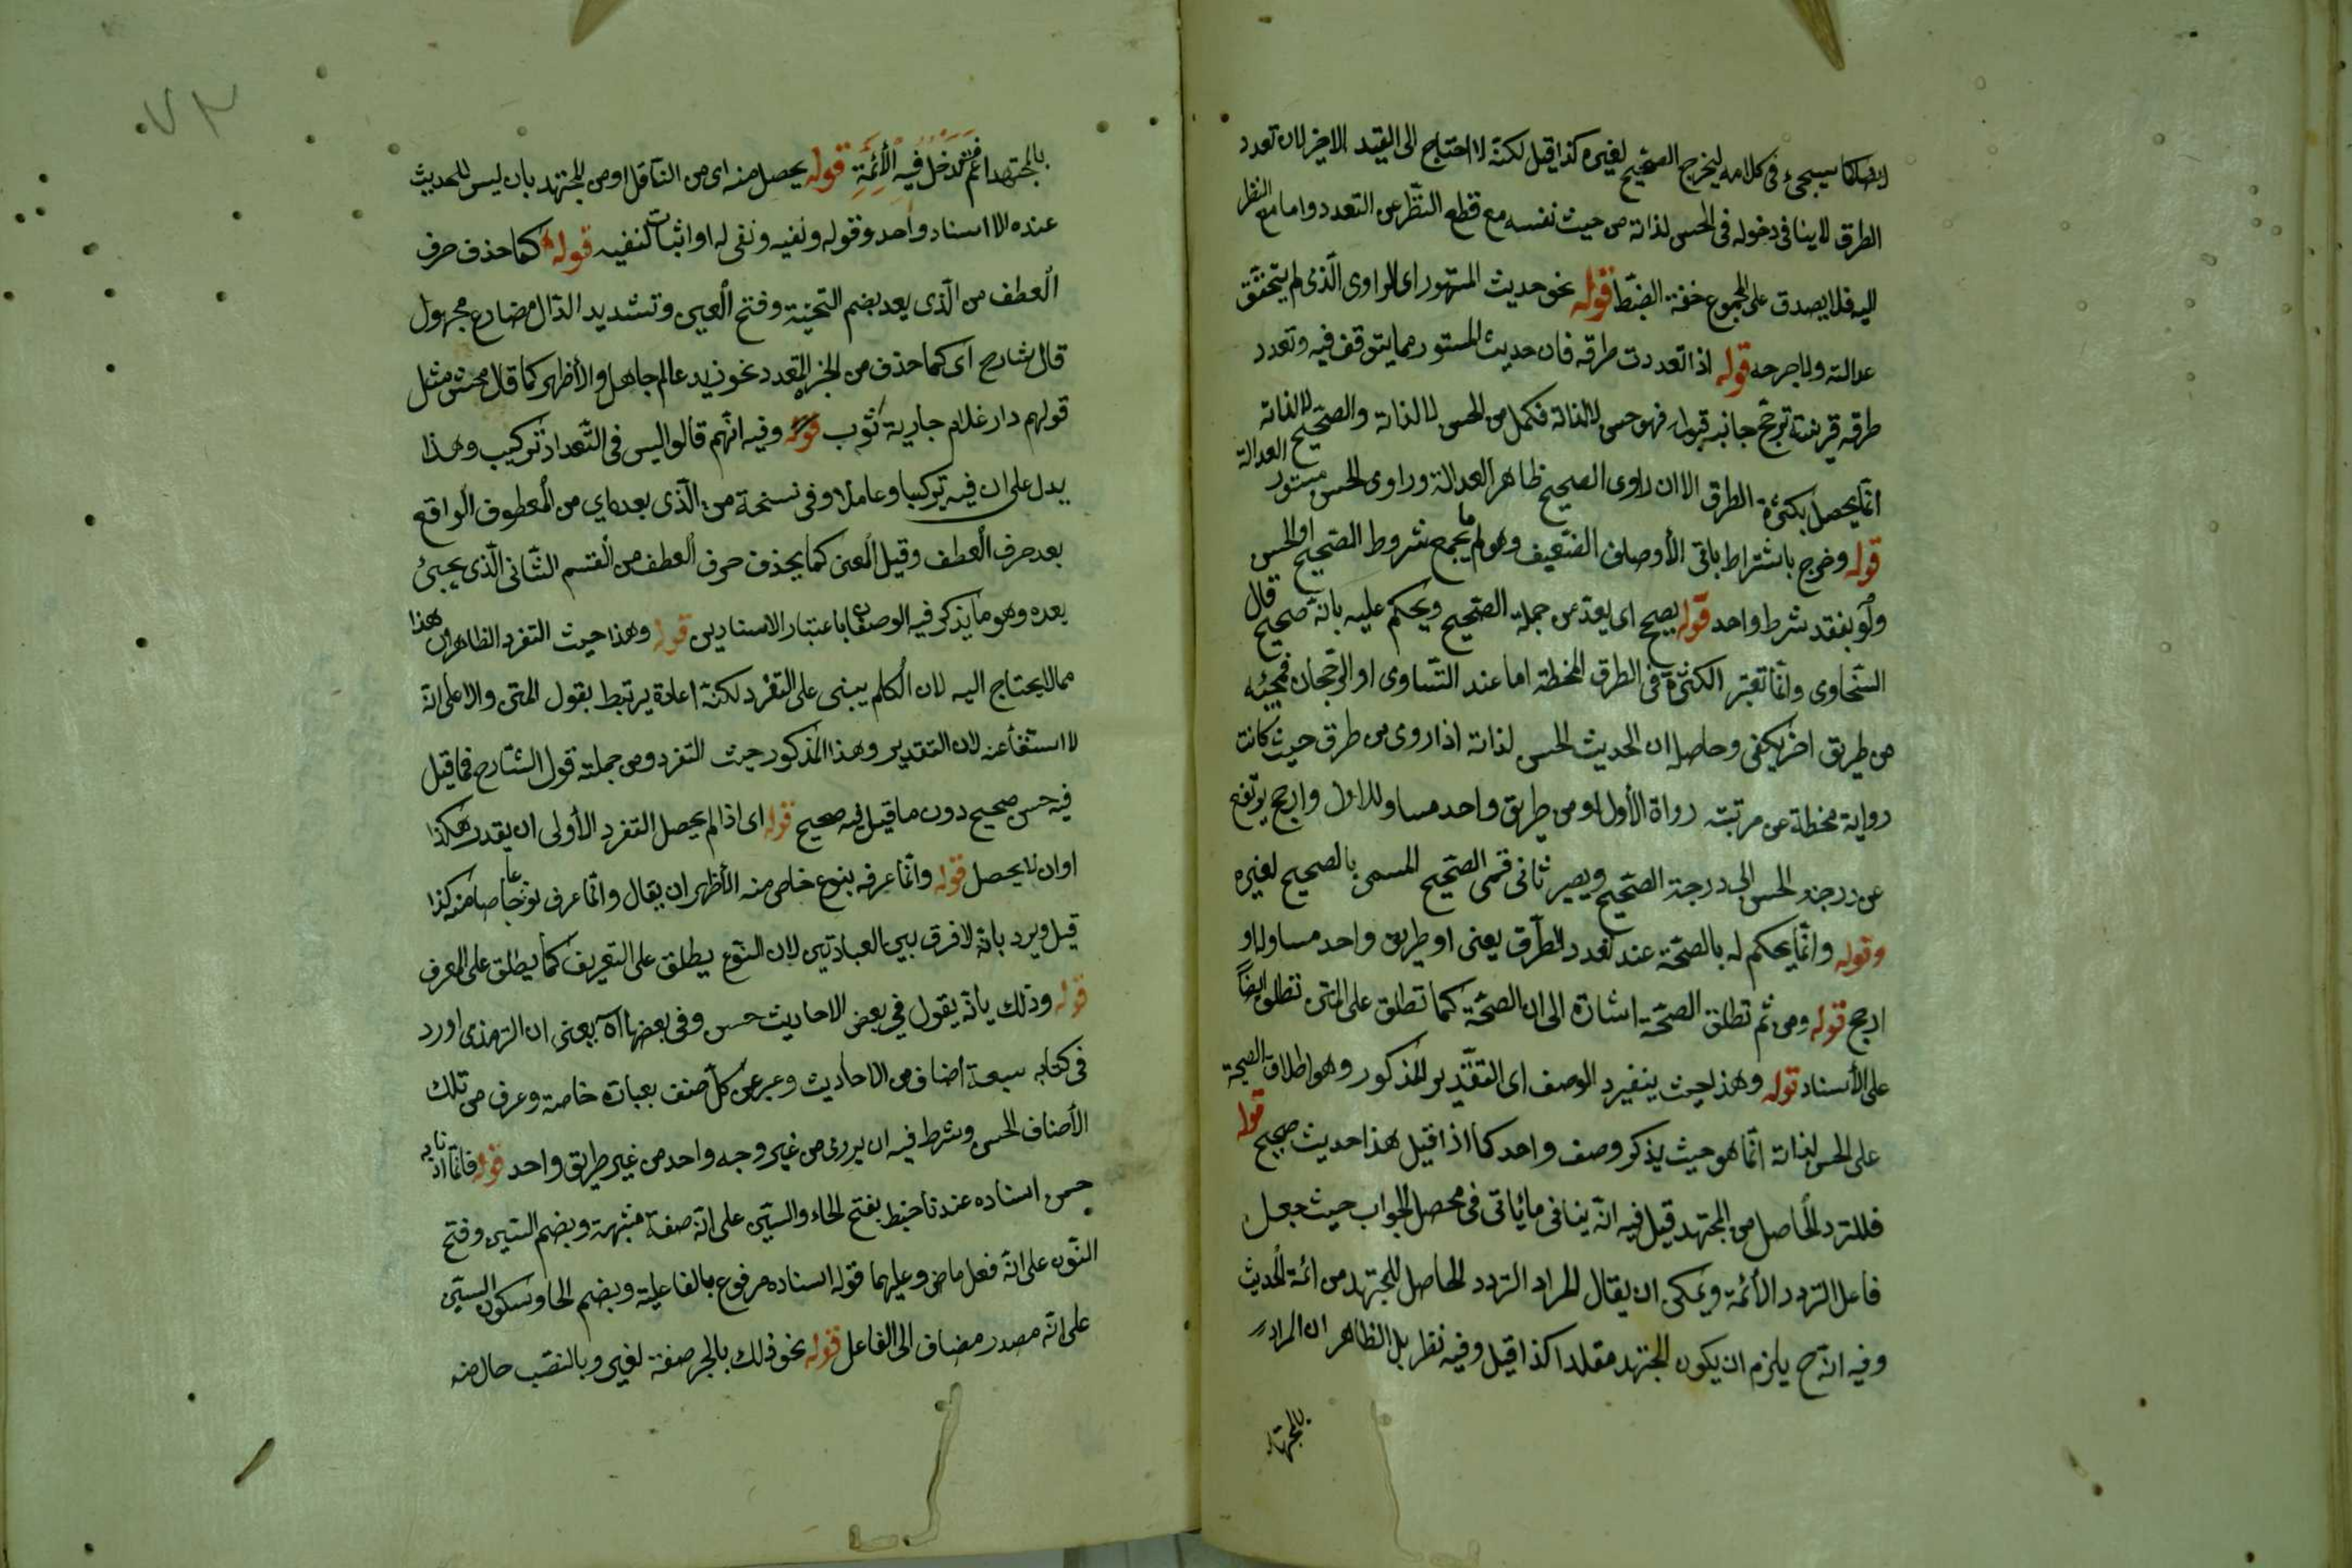 ايضا كما سيجيء في كلامه ليخرج الصحيح لغيره كذا قيل لكنه لا احتاج الى القيد الاخير لان تعدد
الطرق لا ينافي دخوله في الحسن لذاته من حيث نفسه مع قطع النظر عن التعدد واما مع النظر
اليه فلا يصدق على المجموع خفة الضبط قوله نحو حديث المستور اى الراوى الذى لم يتحقق
عدالته ولا جرحه قوله اذا تعددت طرقه فان حديث المستور مما يتوقف فيه وتعدد
طرقه قرينة ترجح جانب قبوله فهو حسن لا لذاته فكل من الحسن لا لذاته والصحيح لا لذاته
انما يحصل بكثرة الطرق الا ان راوى الصحيح ظاهر العدالة وراوى الحسن مستور العدالة
قوله وخرج باشتراط باقى الأوصاف الضعيف وهو ما لم يجمع شروط الصحيح او الحسن
ولو بفقد شرط واحد قوله يصح اى يعد من جملة الصحيح ويحكم عليه بانه صحيح قال
السخاوى وانما تعتبر الكثرة فى الطرق المنحطة اما عند التساوى او الرجحان فمجيئه
من طريق اخر يكفى وحاصله ان الحديث الحسن لذاته اذا روى من طرق حيث كانت
رواية منحطة عن مرتبته رواة الأول او من طريق واحد مساو للاول وارجح يرتفع
عن درجة الحسن الى درجة الصحيح ويصير ثانى قسمى الصحيح المسمى بالصحيح لغيره
وقوله وانما يحكم له بالصحة عند تعدد الطرق يعنى او طريق واحد مساو له او
ارجح قوله ومن ثم تطلق الصحة اشارة الى ان الصحة كما تطلق على المتن تطلق ايضاً
على الأسناد قوله وهذا حيث ينفرد الوصف اى التقدير المذكور وهو اطلاق الصحة
على الحسن لذاته انما هو حيث يذكر وصف واحد كما اذا قيل هذا حديث صحيح قوله
فللتردد الحاصل من المجتهد قيل فيه انه ينافى ما يأتى فى محصل الجواب حيث جعل
فاعل التردد الأئمة ويمكن ان يقال المراد التردد الحاصل للمجتهد من ائمة الحديث
وفيه انه ح يلزم ان يكون المجتهد مقلدا كذا قيل وفيه نظر بل الظاهر ان المراد
بالمجتهد
بالمجتهد اعم فتدخل فيه الأئمة قوله يحصل منه اى من الناقل او من المجتهد بان ليس للحديث
عنده الا اسناد واحد وقوله ونفيه ونفى له او اثبات لنفيه قوله كما حذف حرف
العطف من الذى يعد بضم التحتية وفتح العين وتشديد الدال مضارع مجهول
قال شارح اى كما حذف من الخبر المتعدد نحو زيد عالم جاهل والأظهر كما قال محش مثل
قولهم دار غلام جارية ثوب قوله وفيه انهم قالوا ليس فى التعداد تركيب وهذا
يدل على ان فيه تركيبا وعاملا وفى نسخة من الذى بعد اي من المعطوف الواقع
بعد حرف العطف وقيل المعنى كما يحذف حرف العطف من القسم الثانى الذى يجيئ
بعده وهو ما يذكر فيه الوصفان باعتبار الاسنادين قوله وهذا حيث التفرد الظاهر ان هذا
مما لا يحتاج اليه لان الكلام يبنى على التفرد لكنه اعادة يرتبط بقول المتن والا على انه
لا استغنأ عنه لان التقدير وهذا المذكور حيث التفرد ومن جملته قول الشارح فما قيل
فيه حسن صحيح دون ما قيل فيه صحيح قوله اى اذا لم يحصل التفرد الأولى ان يقدر هكذا
او ان لا يحصل قوله وانما عرفه بنوع خاص منه الأظهر ان يقال وانما عرف نوعا خاصا منه كذا
قيل ويرد بانه لا فرق بين العبارتين لان النوع يطلق على التعريف كما يطلق على المعرف
قوله وذلك يانه يقول في بعض الاحاديث حسن وفى بعضها اه يعنى ان الترمذى اورد
فى كتابه سبعة أضاف من الاحاديث وعبر عن كل صنف بعبارة خاصة وعرف من تلك
الأصناف الحسن وشرط فيه ان يروى من غير وجه واحد من غير طريق واحد قوله فانما اردنا به
حسن اسناده عندنا ضبط بفتح الحاء والسين على انه صفة مشبهة وبضم السين وفتح
النون على انه فعل ماض وعليهما قوله اسناده مرفوع بالفاعلية وبضم الحا وسكون السين
على انه مصدر مضاف الى الفاعل قوله نحو ذلك بالجر صفة لغير وبالنصب حال منه